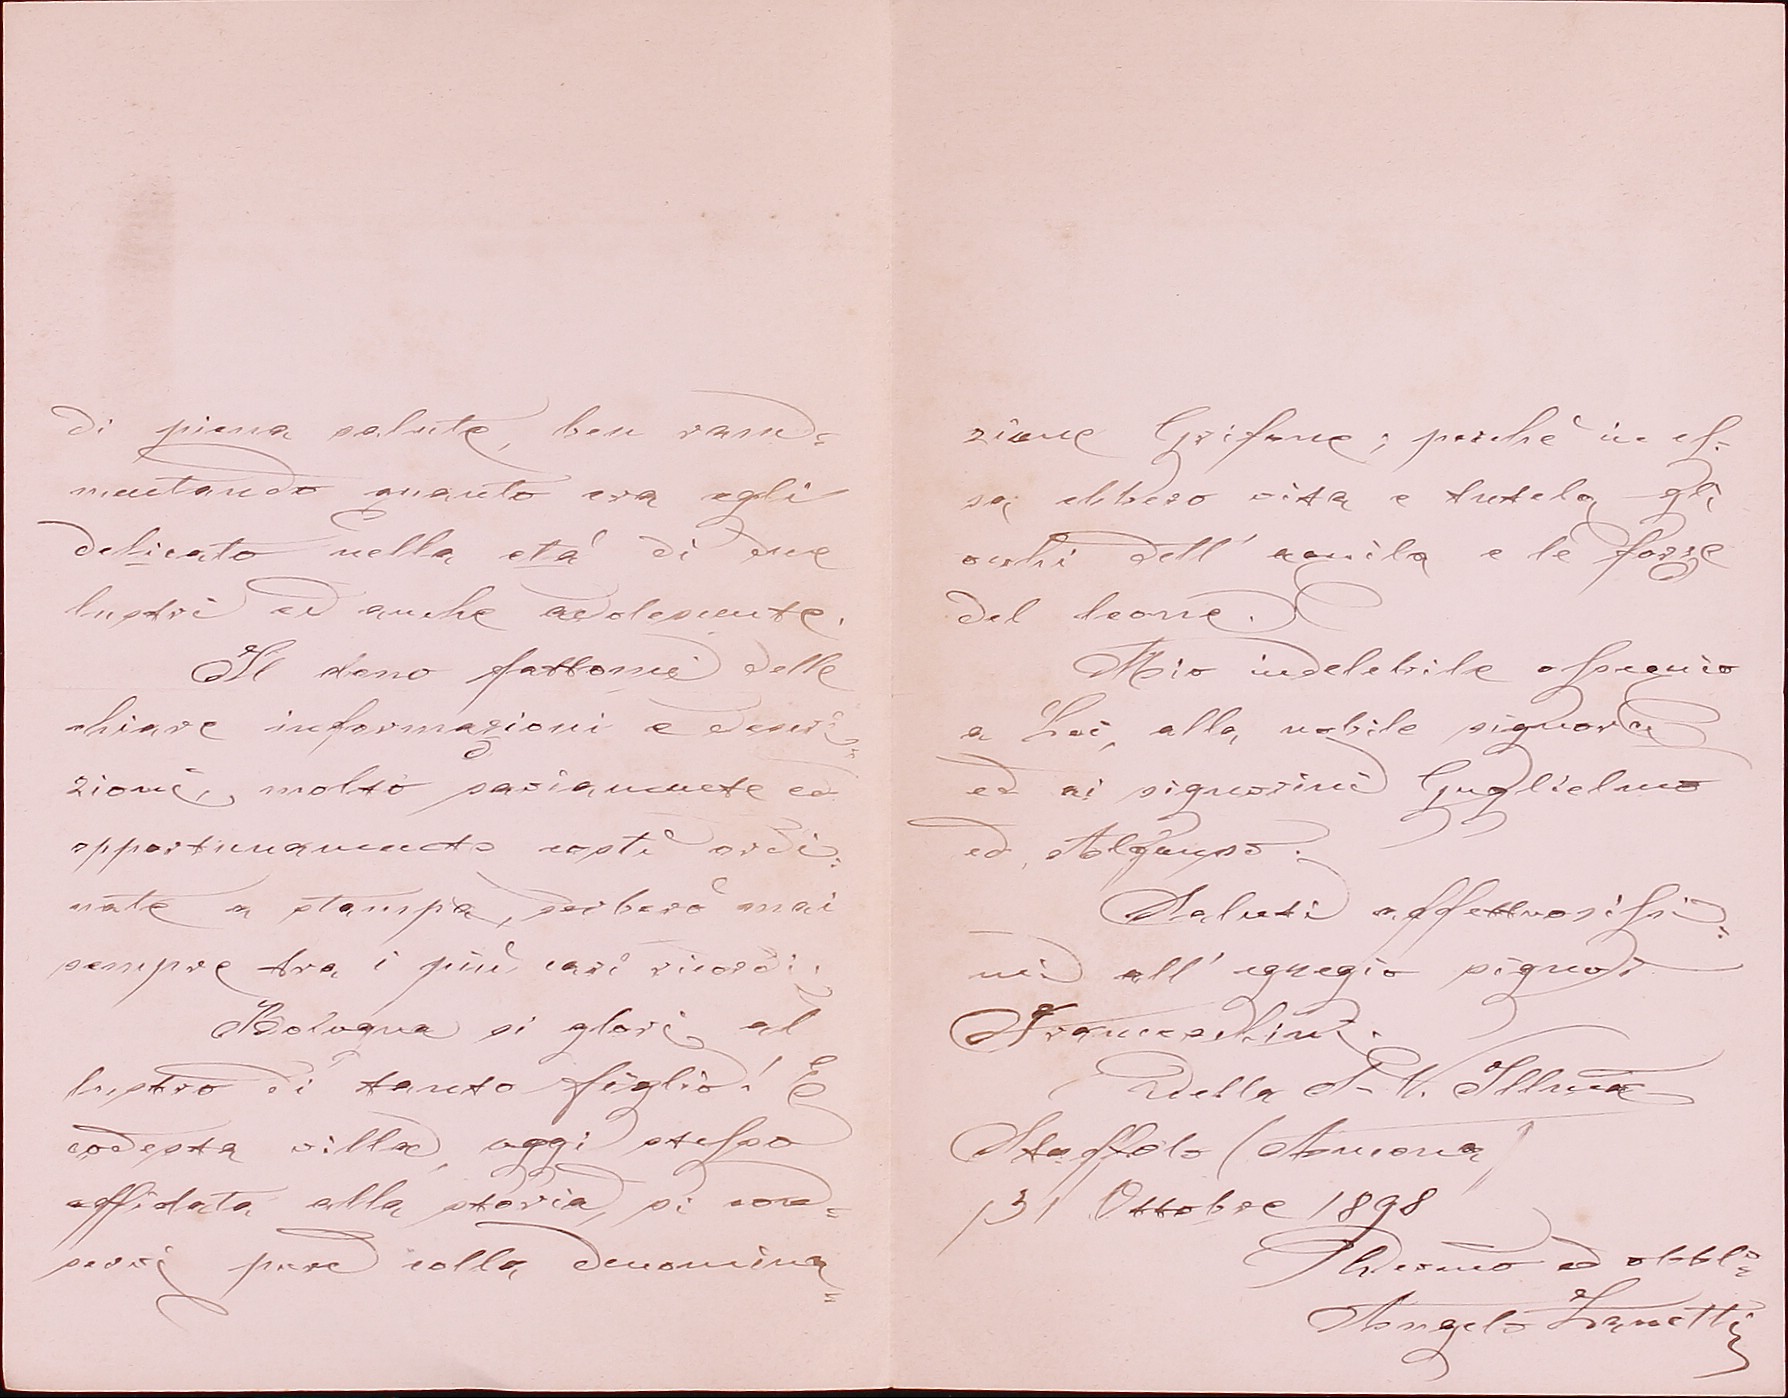 di piena salute, ben ram=
mentando quanto era egli
delicato nella età di due
lustri ed anche adolescente.
Il dono fattomi delle
chiare informazioni e descri=
zioni, molto saviamente ed
opportunamente costì ordi=
nate a stampa, serberò mai
sempre tra i più cari ricordi.
Bologna si glori al
lustro di tanto figlio! E
codesta villa, oggi stesso
affidata alla storia, si con=
servi pure colla denomina=
zione Grifone; perché in es=
sa ebbero vita e tutela gli
occhi dell'aquila e le forze
del leone.
Mio indelebile ossequio
a Lei, alla nobile signora
ed ai signorini Guglielmo
ed Alfonso.
Saluti affettuosissi=
mi all'egregio signor
Franceschini.
Della S. V. Illma
Staffolo (Ancona)
31 Ottobre 1898
ed obbl=
Angelo Zanetti